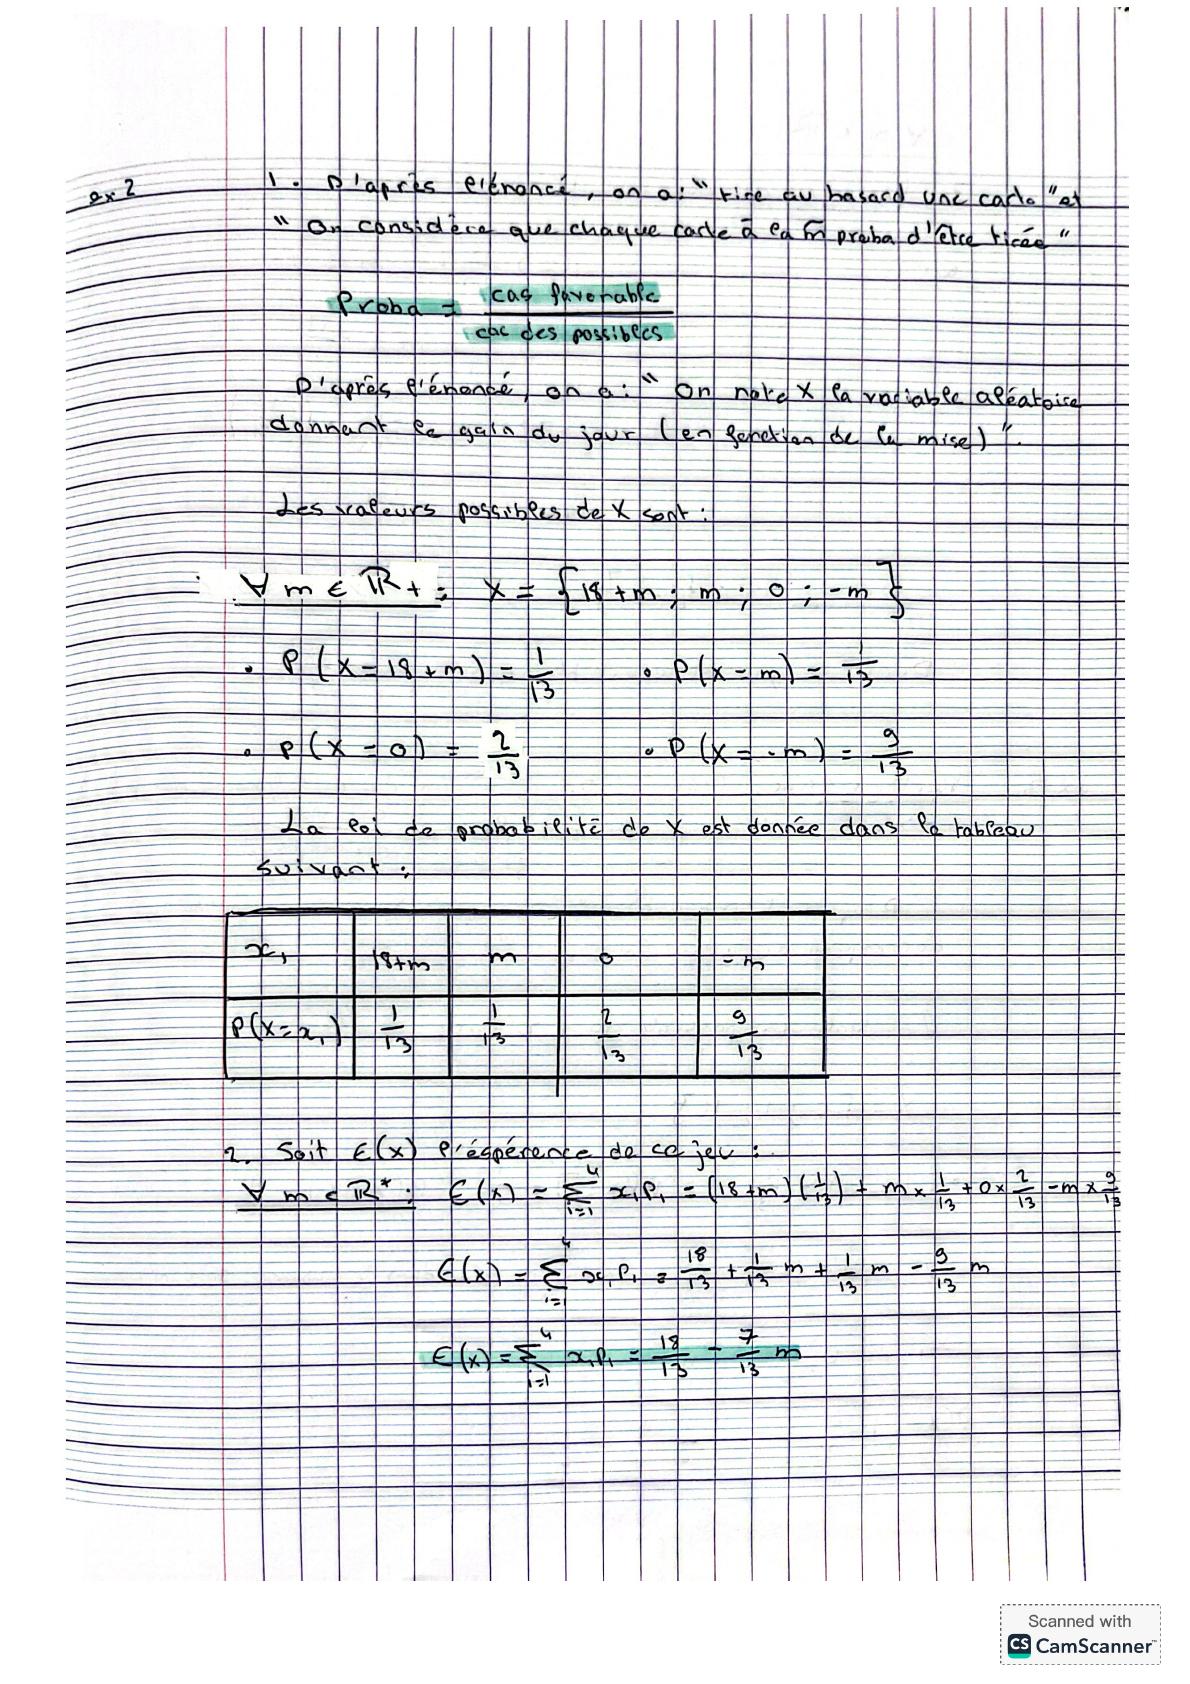 ex 2
1. D'après l'énoncé, on a: "tire au hasard une carte" et
"On considère que chaque carte à la m̄ proba d'être tirée"
Proba = cas favorable / cas des possibles
D'après l'énoncé, on a: "On note X la variable aléatoire
donnant le gain du jour (en fonction de la mise)".
Les valeurs possibles de X sont:
∀ m ∈ ℝ+: X = {18+m ; m ; 0 ; -m}
• P(X=18+m) = 1/13 • P(X=m) = 1/13
• P(X=0) = 2/13 • P(X=-m) = 9/13
La loi de probabilité de X est donnée dans le tableau
suivant:
xᵢ 18+m m 0 -m
P(X=xᵢ) 1/13 1/13 2/13 9/13
2. Soit E(X) l'éspérence de ce jeu:
∀ m ∈ ℝ*: E(X) = Σ_{i=1}^{4} xᵢPᵢ = (18+m)(1/13) + m × 1/13 + 0 × 2/13 - m × 9/13
E(X) = Σ_{i=1}^{4} xᵢPᵢ = 18/13 + 1/13 m + 1/13 m - 9/13 m
E(X) = Σ_{i=1}^{4} xᵢPᵢ = 18/13 - 7/13 m
Scanned with
CS CamScanner™